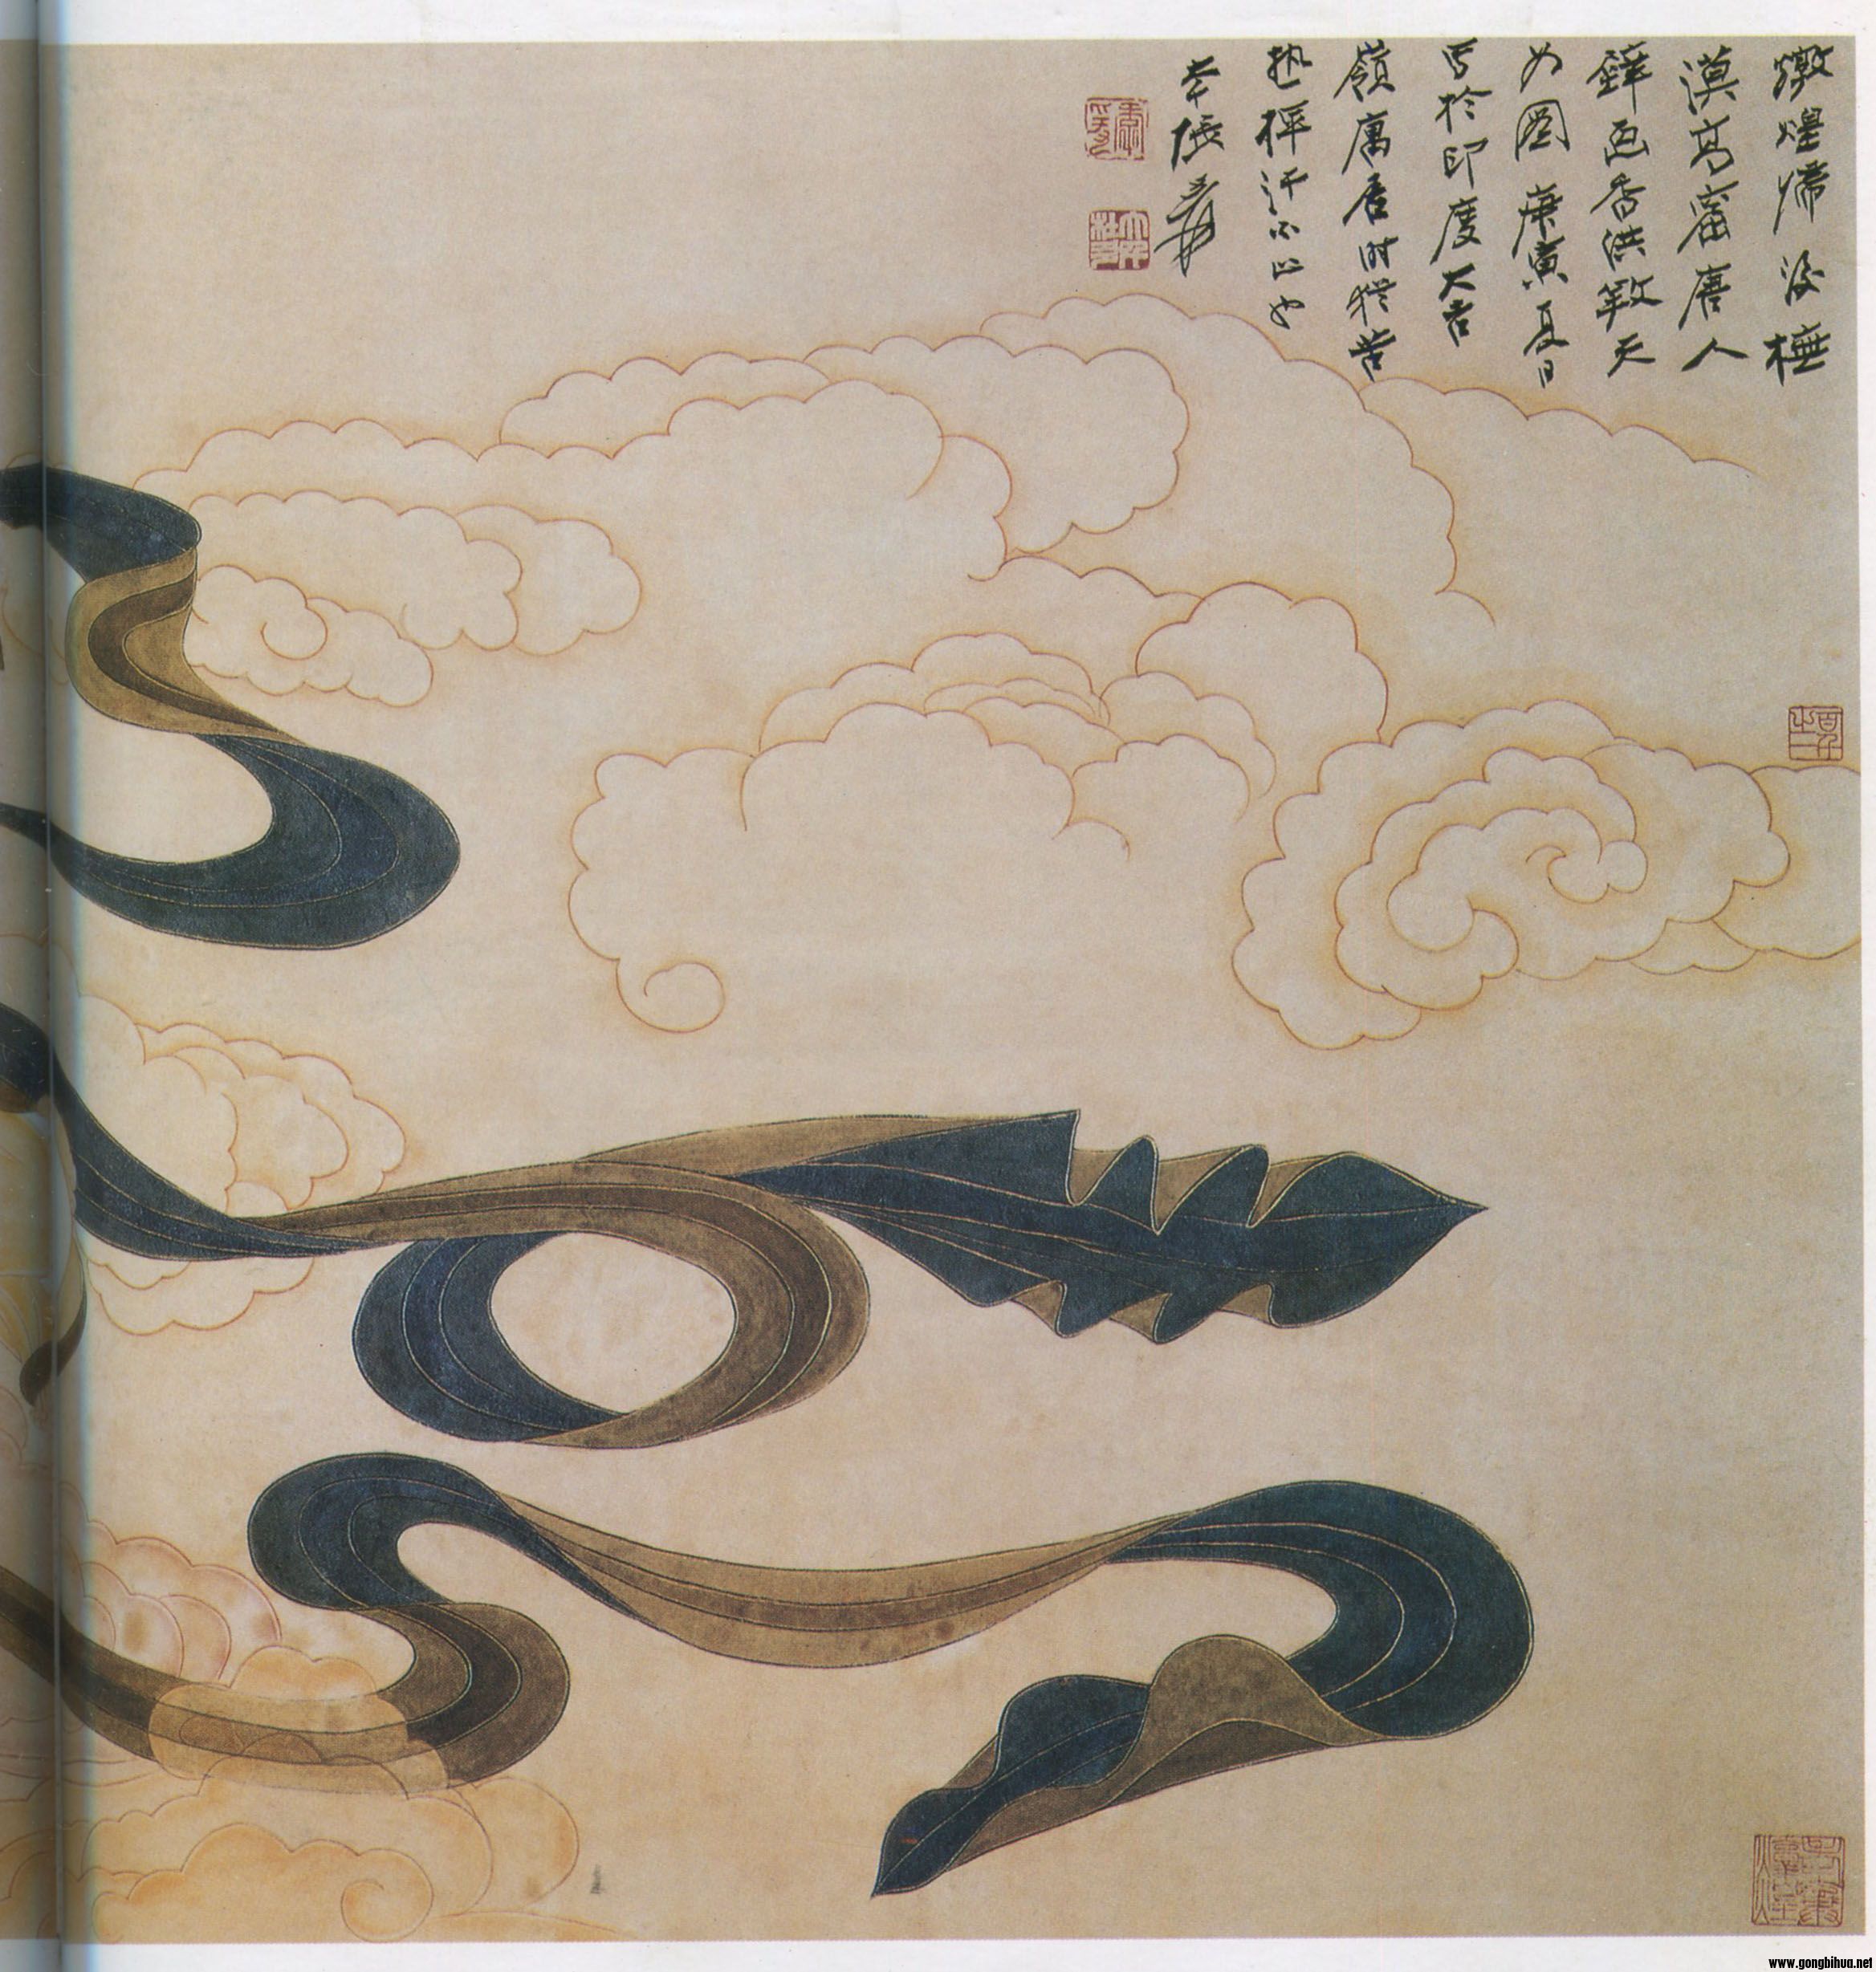 燉煌歸後橅
漠高窟唐人
壁画香洪天
女圖 庚寅夏日
写於印度大吉
嶺寓居时猶苦
热揮汗不止也
大千張爰
www.gongbihua.net